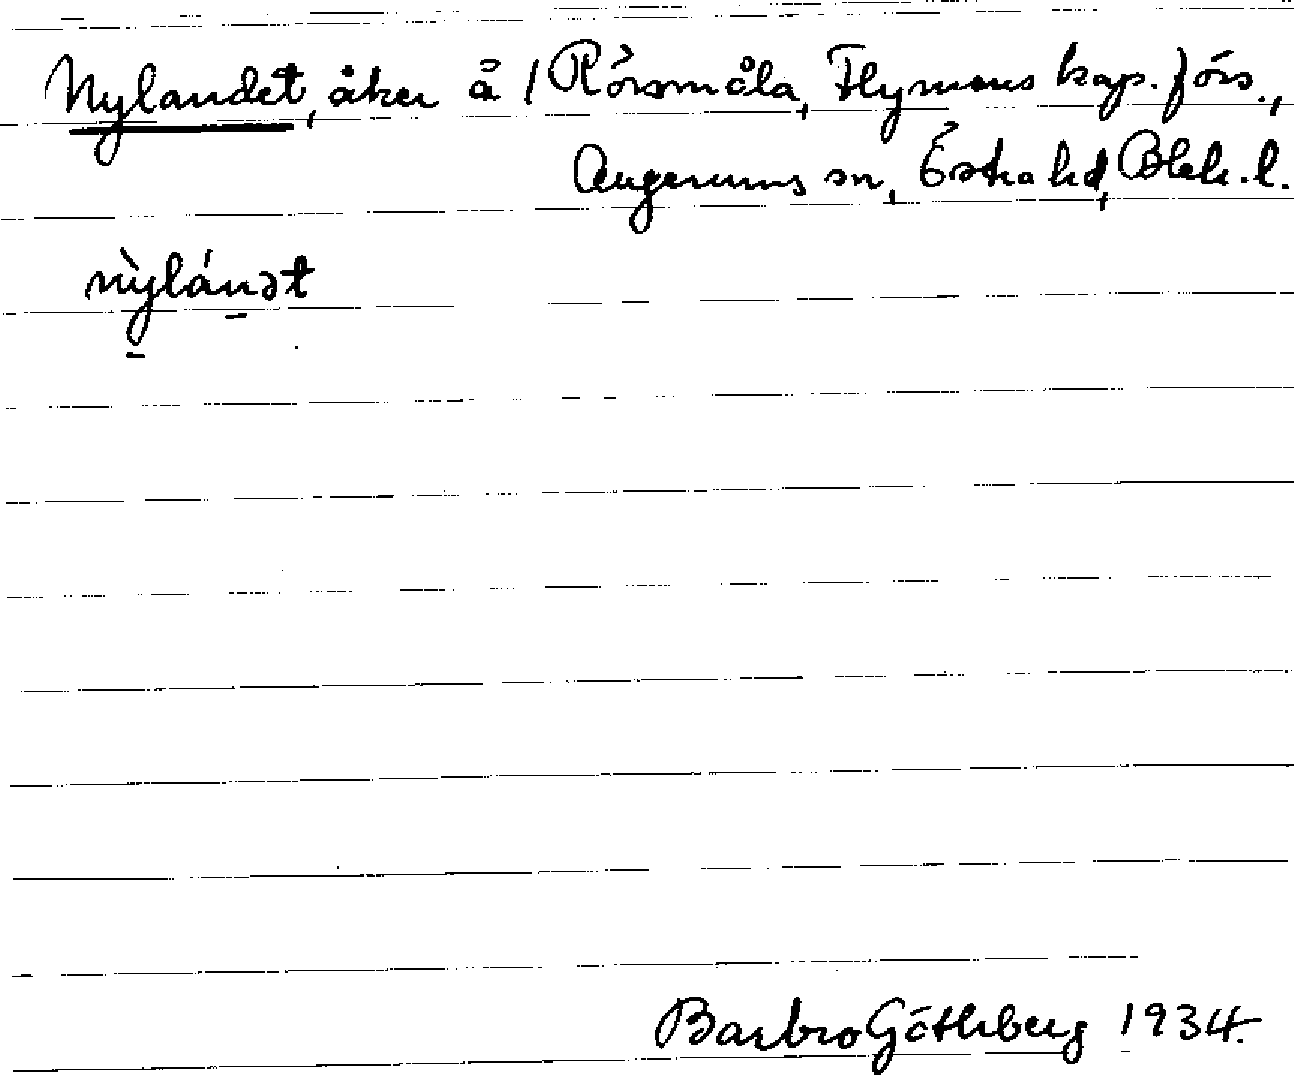 Nylandet, åker å / Rörsmåla, Flymens kap. förs.,
Augerums sn, Östra hd, Blek. l.
nỳlánət
Barbro Göthberg 1934.